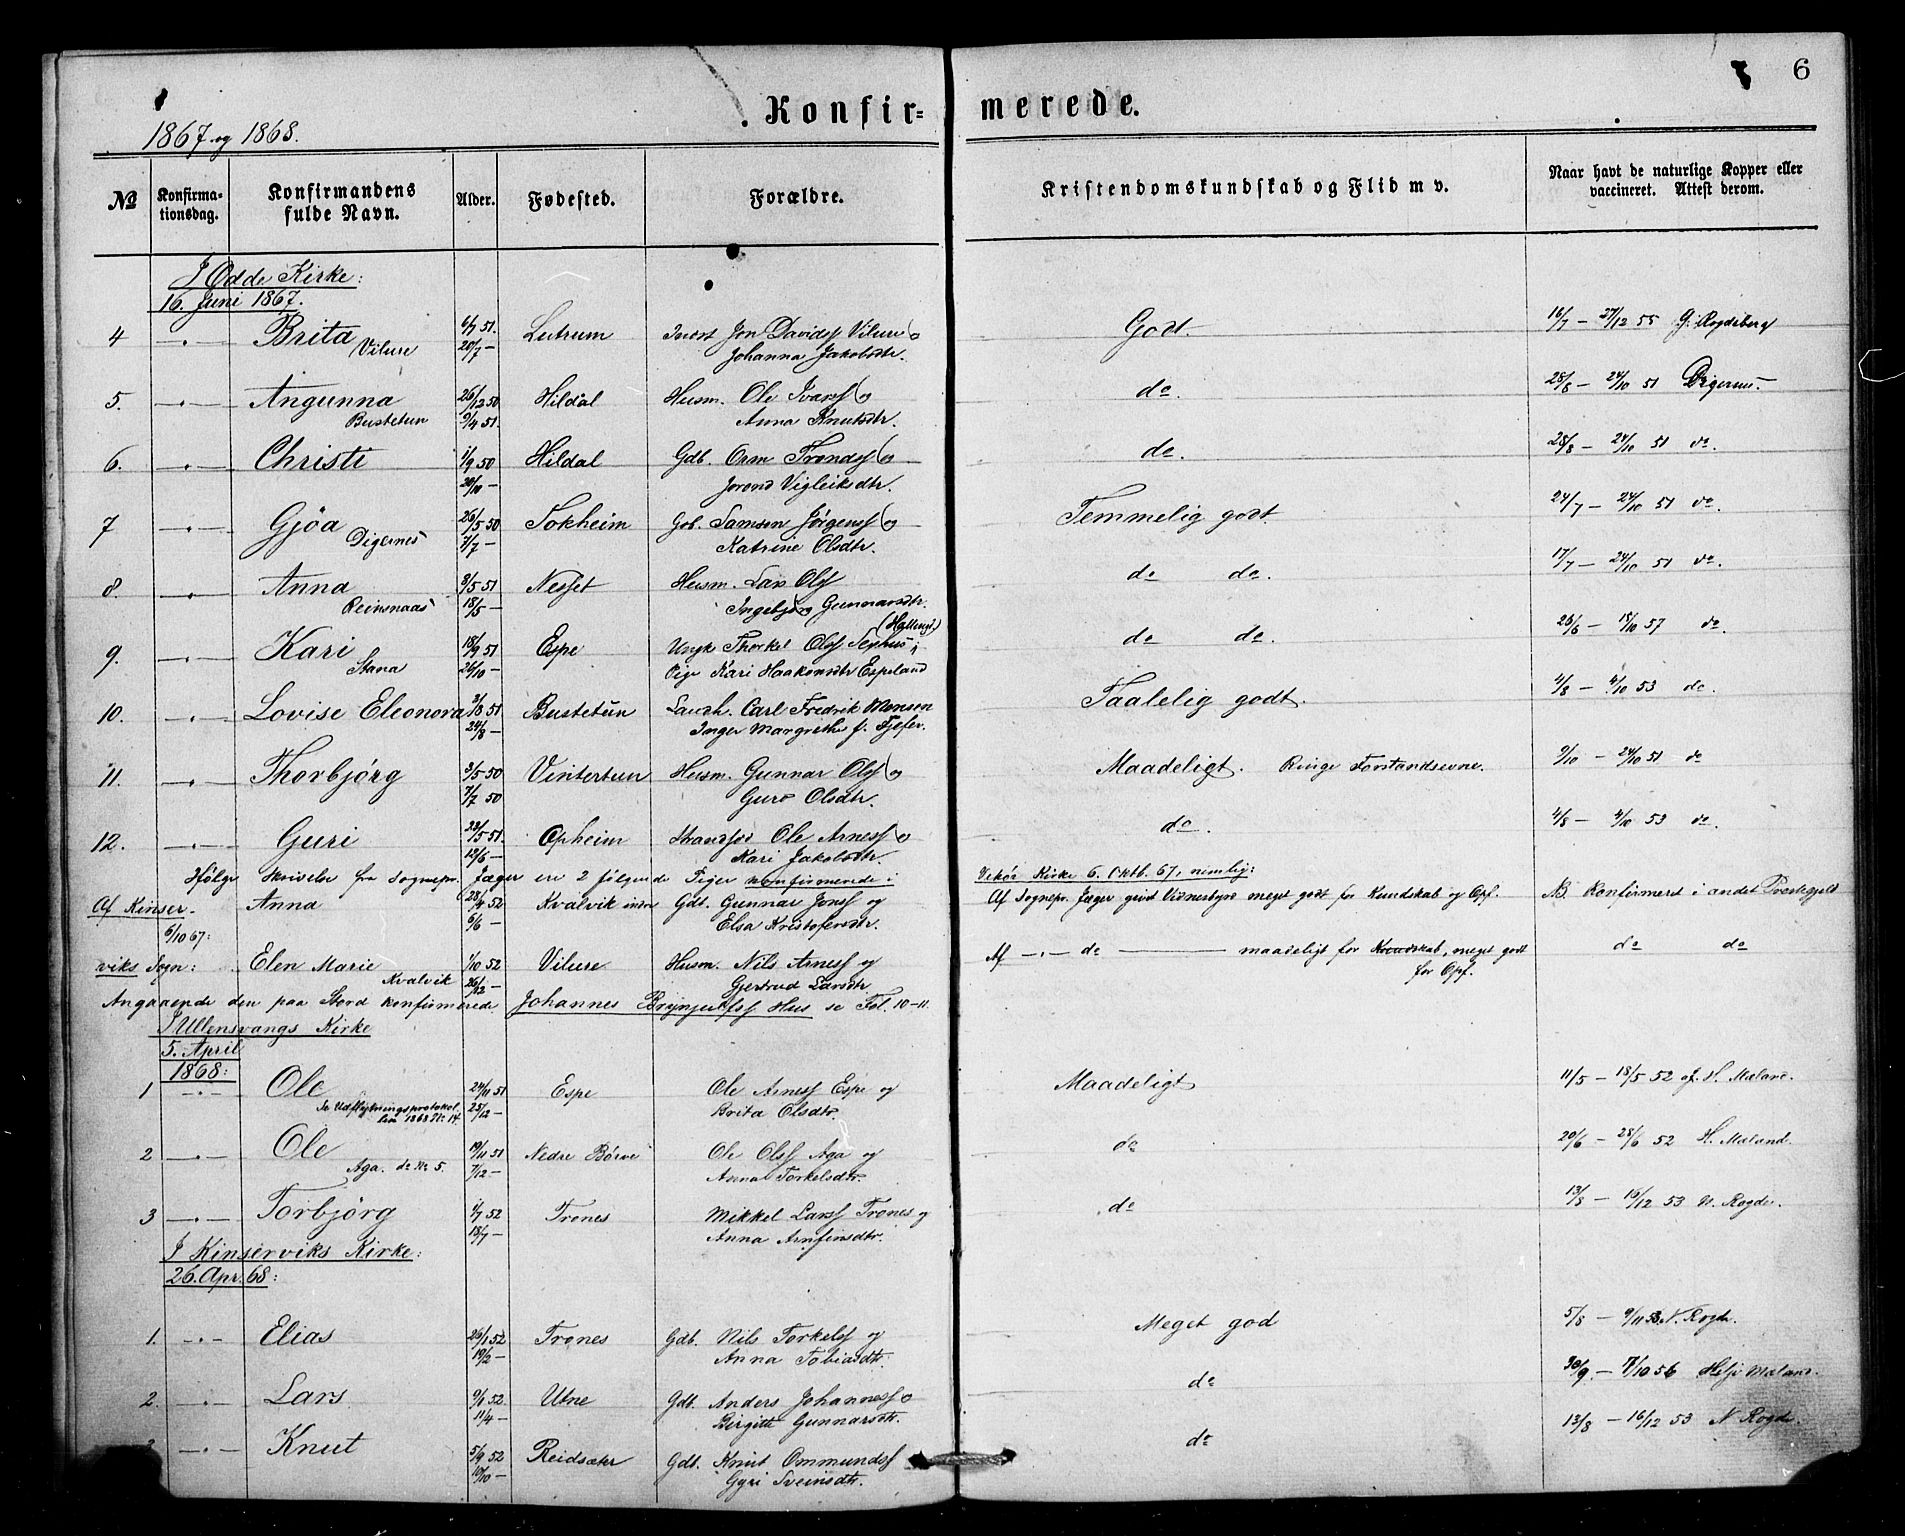 6
Konfirmerede.
1867 og 1868.
№ Konfirmationsdag. Konfirmandens fulde Navn. Alder. Fødested. Forældre. Kristendomskundskab og Flid m v. Naar havt de naturlige Kopper eller vaccineret. Attest derom.
I Odde Kirke:
16. Juni 1867.
4 -"- Brita 6/7 51. Lutrum Jon Davids Vilure og Godt. 16/7 – 27/12 55 G. Rogdeberg
Vilure 20/7 – Johanna Jakobsdtr.
5. -"- Angunna 26/12 50 Hildal Husm. Ole Ivars og do. 28/8 – 24/10 51 Digernes.
Bustetun 9/4 51. Anna Knutsdtr.
6. -"- Christi 1/9 50 Hildal Gdb. Orm Tronds og do. 28/8 – 24/10 51 do.
20/10 – Jorond Vigleiksdtr.
7 -"- Gjöa 26/5 50 Tokheim Gdb. Samson Jörgens og Temmelig godt. 24/7 – 24/10 51 do.
Digernes 7/7 – Katrine Olsdtr.
8. -"- Anna 3/5 51 Nesset Husm. Lars Ols do do. 17/7 – 24/10 51 do.
Reinsnaas 18/5 – Ingebjør Gunnarsdtr.
9. -"- Kari 18/9 51 Espe Ungk Thorkel Ols (Hallingd.) do do. 26/6 – 18/10 57 do.
Stana 26/10 – Pige Kari Haakonsdtr Espeland
10. -"- Lovise Eleonora 3/8 51 Bustetun Landh. Carl Fredrik Monsen Taalelig godt. 4/8 – 4/10 53 do.
24/8 – Inger Margrethe f. Fjefer.
11. -"- Thorbjörg 3/5 50 Vintertun Husm. Gunnar Ols og Maadeligt. Ringe Forstandsevne. 9/10 – 24/10 51 do
7/7 50 Guro Olsdtr.
12. -"- Guri 22/5 51. Opheim Strandsid Ole Arnes og do. 4/8 – 4/10 53 do.
12/6 – Kari Jakobsdtr.
Ifølge Skrivelse fra Sognepr. Jæger ere 2 følgende Piger konfirmerede i Vikör Kirke 6. Oktb. 67, nemlig:
Af Kinser- Anna 28/4 52 Kvalvik indre Gdb. Gunnar Jons og Af Sognepr. Jæger givet Vidnesbyrd meget godt for Kundskab og Opf. NB. Konfirmert i andet Præstegjeld
6/10 67: 6/6 – Elsa Kristofersdtr.
viks Sogn: Elen Marie 1/10 52 Vilure Husm. Nils Arnes og Af -"- do maadeligt for Kundskab, meget godt do do
Kvalvik 26/12 – Gjertrud Larsdtr for Opf.
Angaaende den paa Stord konfirmerede Johannes Brynjulfs Hus se Fol. 10–11.
I Ullensvangs Kirke
5. April
1868:
1 -"- Ole 24/11 51 Espe Ole Arnes Espe og Maadeligt 11/5 – 18/5 52 af H. Mæland.
Se Udflytningsprotokollen 1868 № 14. 25/12 – Brita Olsdtr.
2 -"- Ole 19/11 51 Nedre Børve Ole Ols Aga og do 20/6 – 28/6 52 H. Mæland.
Aga. do № 5. 7/12 – Anna Torkelsdtr.
3 -"- Torbjørg 1/7 52 Trones Mikkel Lars Trones og do 13/8 – 16/12 53 N. Rogde.
18/7 – Anna Arnfinsdtr.
I Kinserviks Kirke:
26. Apr. 68:
1. -"- Elias 26/1 52 Trones Gdb. Nils Torkels og Meget god 5/8 – 9/11 53. N. Rogde.
19/2 – Anna Tobiasdtr.
2. -"- Lars 9/1 52. Utne Gdb. Anders Johannes og do 30/9. – 7/10 56 Helje Mæland.
11/4 – Birgitte Gunnarsdtr.
3. -"- Knut 5/9 52 Reidsæter Gdb. Knut Ommunds do 13/8 – 16/12 53 N Rogde.
10/10 – Gyri Sveinsdtr.